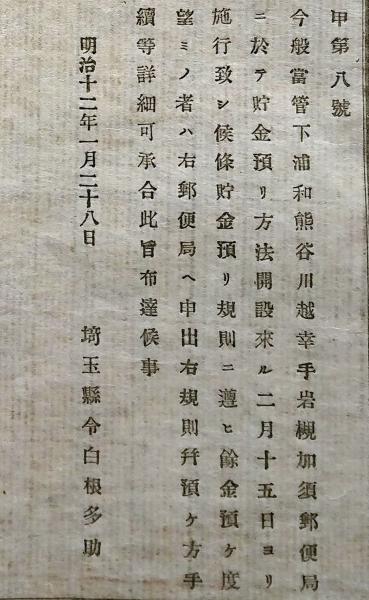 甲第八號
今般當管下浦和熊谷川越幸手岩槻加須郵便局
ニ於テ貯金預リ方法開設來ル二月十五日ヨリ
施行致シ候條貯金預リ規則ニ遵ヒ餘金預ケ度
望ミノ者ハ右郵便局ヘ申出右規則幷預ケ方手
續等詳細可承合此旨布達候事
明治十二年一月二十八日　埼玉縣令白根多助